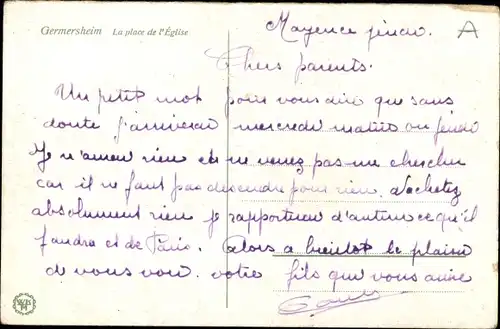 Germersheim La place de l'Église
Mayence jeudi. A
Chers parents.
Un petit mot pour vous dire que sans
doute j'arriverai mercredi matin ou jeudi
Je n'amen rien et ne venez pas me chercher
car il ne faut pas descendre pour rien. N'achetez
absolument rien je rapporterai d'autun ce qu'il
faudra et de Paris. Alors a bientot le plaisir
de vous voir. votre fils qui vous aime